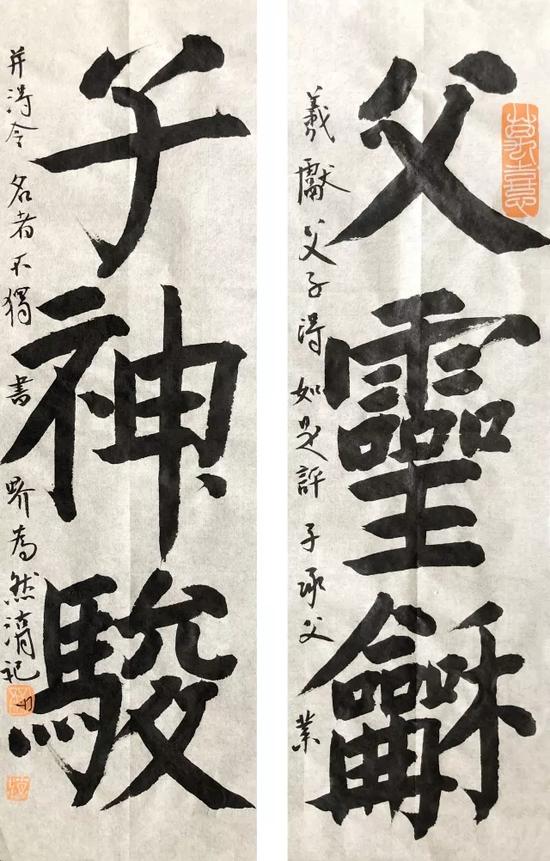 父靈龢
羲獻父子得如是評子承父業
子神駿
并得令名者不獨書畍為然